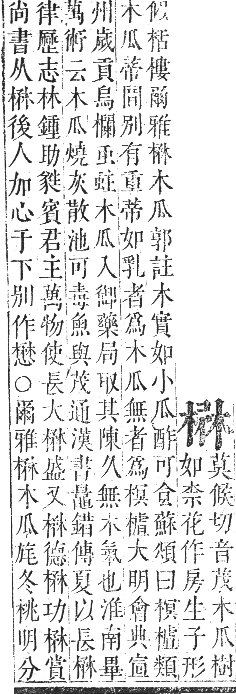 楙
莫候切音茂木瓜樹
如柰花作房生子形
似栝樓爾雅楙木瓜郭註木實如小瓜酢可食蘇頌曰榠樝類
木瓜蒂間别有重蒂如乳者爲木瓜無者爲榠樝大明會典宣
州歲貢烏欄虫蛀木瓜入御藥局取其陳久無木氣也淮南畢
萬術云木瓜燒灰散池可毒魚與茂通漢書鼂錯傳夏以長楙
律歷志林鍾助蕤賓君主萬物使長大楙盛又楙德楙功楙賞
尚書从楙後人加心于下别作懋○爾雅楙木瓜旄冬桃明分